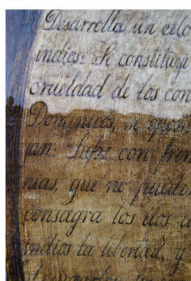 Desarrolla un celo
indios. Se constituye
crueldad de los con
Dominicos, se
jan. Sufre con
nias, que no puede
consagra los
indios la libertad, y